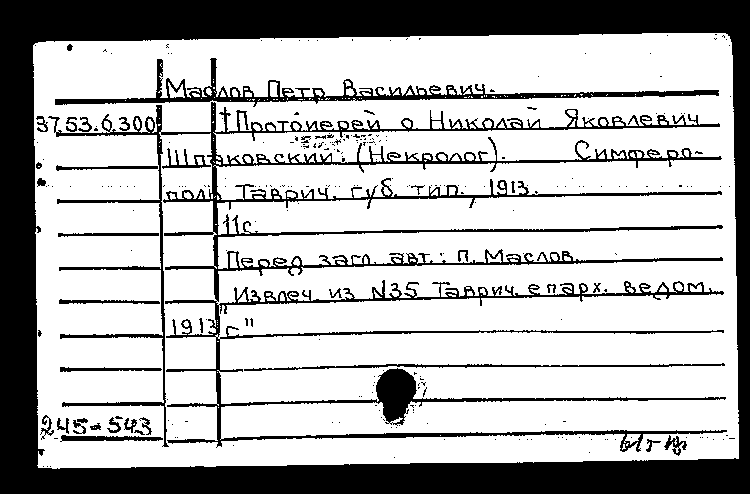 Маслов, Петр Васильевич.
37.53.6.300 †Протоиерей о Николай Яковлевич
Шпаковский. (Некролог). Симферо-
поль, Таврич. губ. тип., 1913.
11с.
Перед загл. авт.: П. Маслов.
Извлеч. из N35 Таврич. епарх. ведом.
"1913 г"
245-543